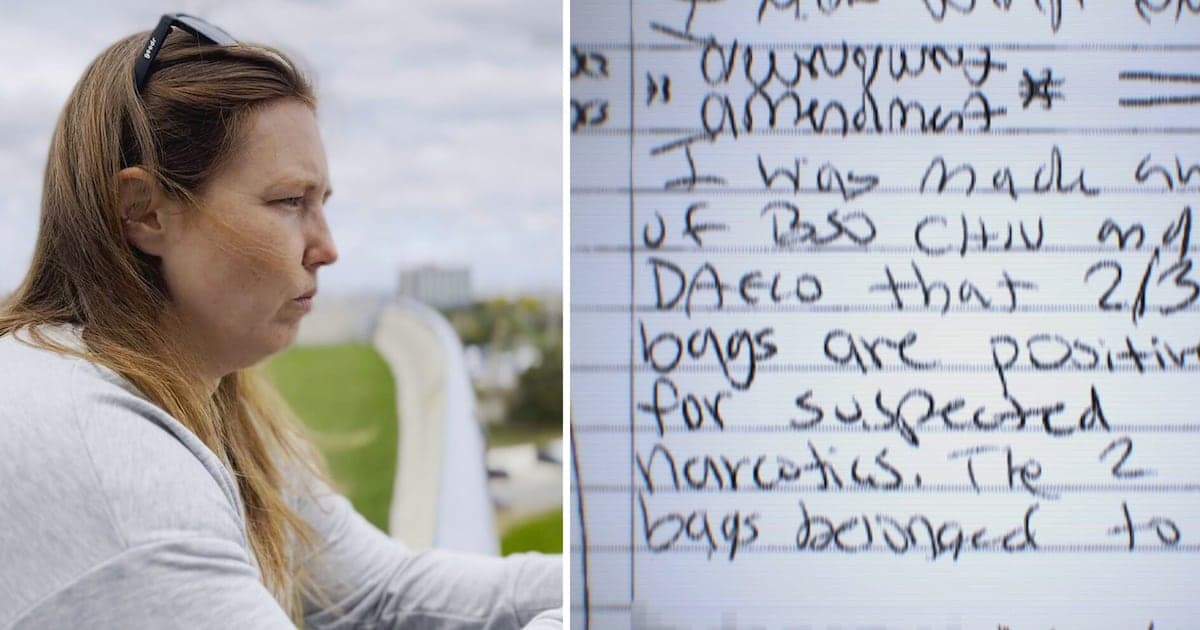 goodr
amendment *
I was made an
of BSO CHIU and
DAEIO that 2/3
bags are positiv
for suspected
narcotics. The 2
bags belonged to